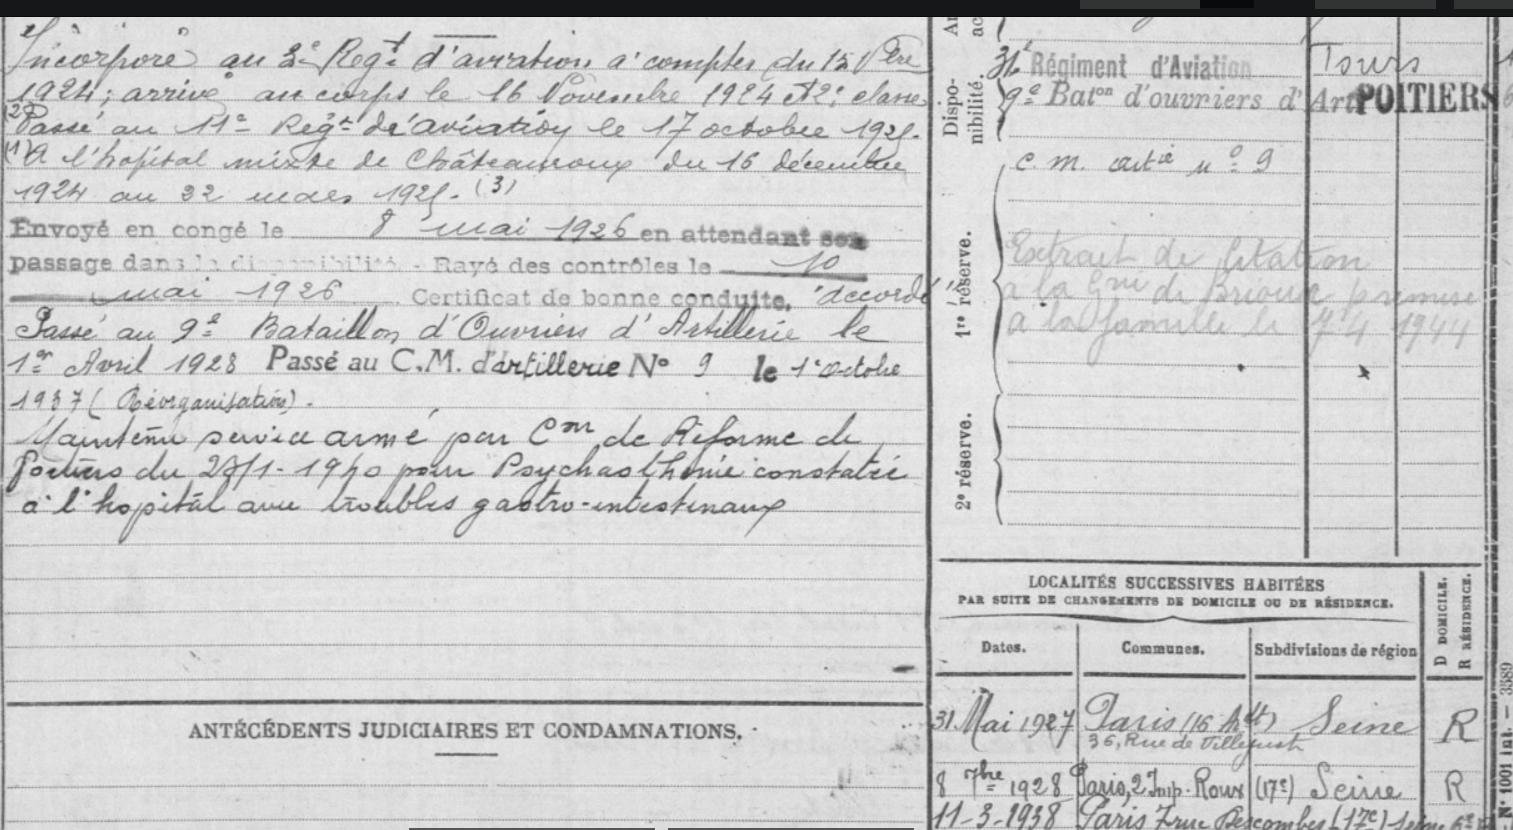 Incorporé au 3e Regt d'aviation à compter du 15 9bre
1924; arrivé au corps le 16 Novembre 1924 et 2e classe.
(2) Passé au 11e Regt d'aviation le 17 octobre 1925.
(1) A l'hôpital mixte de Châteauroux du 16 décembre
1924 au 22 mars 1925. (3)
Envoyé en congé le 8 mai 1926 en attendant son
passage dans la disponibilité. - Rayé des contrôles le 10
mai 1926. Certificat de bonne conduite, "accordé"
Passé au 9e Bataillon d'Ouvriers d'Artillerie le
1er Avril 1928 Passé au C.M. d'artillerie No 9 le 1er Octobre
1937 (Réorganisation).
Maintenu service armé par Con de Réforme de
Poitiers du 1940 pour Psychasthénie constatée
à l'hopital avec troubles gastro-intestinaux
ANTÉCÉDENTS JUDICIAIRES ET CONDAMNATIONS.
Dispo-
nibilité.
Régiment d'Aviation Tours
9e Baton d'ouvriers d'Art POITIERS
c. m. artie no 9
1re réserve.
Extrait de Citation
à la de Brioux remise
à la famille le 7 4 1944
2e réserve.
LOCALITÉS SUCCESSIVES HABITÉES
PAR SUITE DE CHANGEMENTS DE DOMICILE OU DE RÉSIDENCE.
D DOMICILE.
R RÉSIDENCE.
Dates. Communes. Subdivisions de région
31 Mai 1927 Paris (16 Art) Seine R
36, Rue de Villejust
8 7bre 1928 Paris, 2 Imp. Roux (17e) Seine R
11-3-1938 Paris 7 rue Descombes (17e) Seine
No 1001 int. - 3589